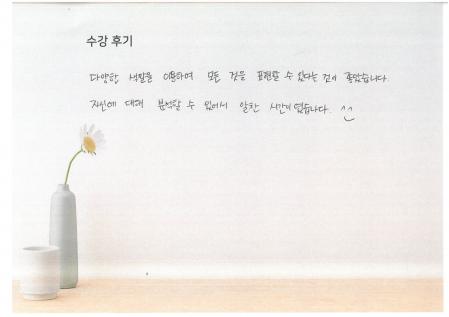 수강 후기
다양한 색깔을 이용하여 모든 것을 표현할 수 있다는 것이 좋았습니다.
자신에 대해 분석할 수 있어서 알찬 시간이었습니다. ^^